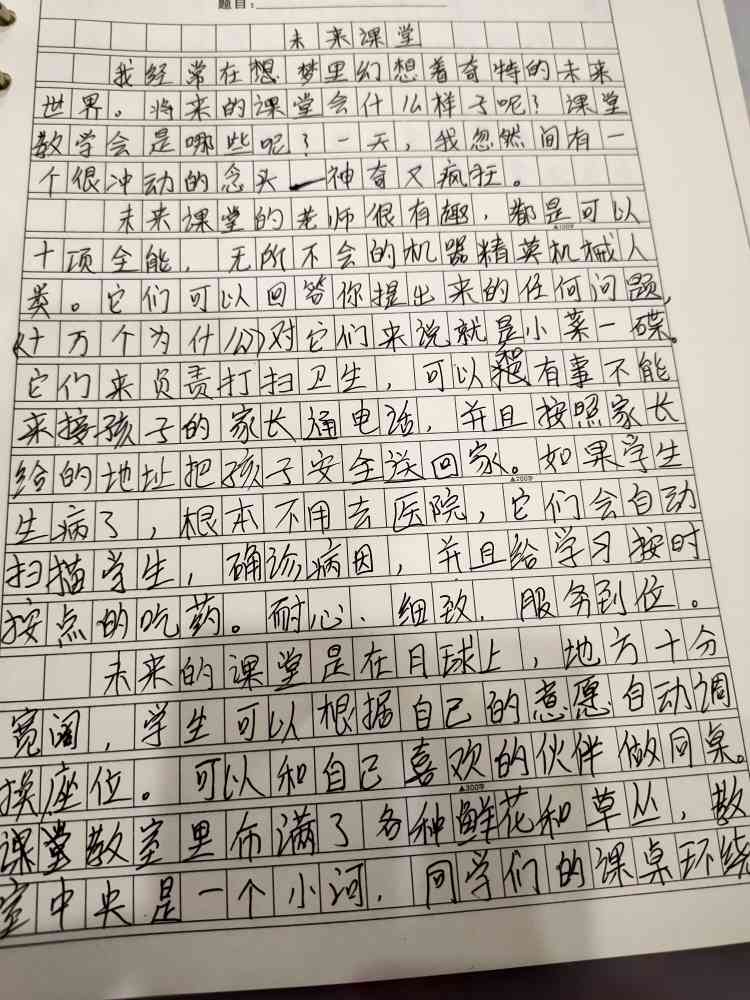 题目:
未来课堂
我经常在想梦里幻想着奇特的未来
世界。将来的课堂会什么样子呢？课堂
教学会是哪些呢？一天，我忽然间有一
个很冲动的念头—神奇又疯狂。
未来课堂的老师很有趣，都是可以
▲100字
十项全能，无所不会的机器精英机械人
类。它们可以回答你提出来的任何问题，
《十万个为什么》对它们来说就是小菜一碟。
它们来负责打扫卫生，可以和有事不能
来接孩子的家长通电话，并且按照家长
给的地址把孩子安全送回家。如果学生
▲200字
生病了，根本不用去医院，它们会自动
扫描学生，确诊病因，并且给学习按时
按点的吃药。耐心、细致、服务到位。
未来的课堂是在月球上，地方十分
宽阔，学生可以根据自己的意愿自动调
换座位。可以和自己喜欢的伙伴做同桌。
▲300字
课堂教室里布满了各种鲜花和草丛，教
室中央是一个小河，同学们的课桌环绕